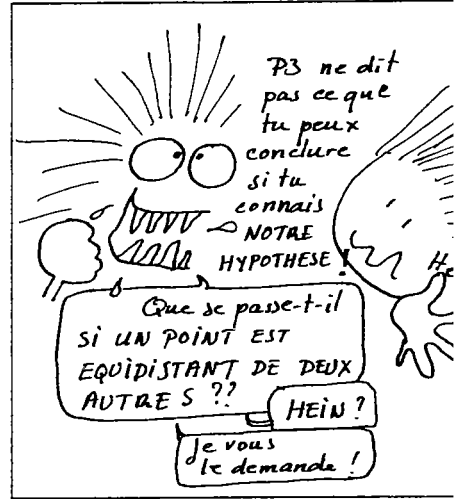 P3 ne dit
pas ce que
tu peux
conclure
si tu
connais
NOTRE
HYPOTHESE !
He
Que se passe-t-il
SI UN POINT EST
EQUIDISTANT DE DEUX
AUTRES ??
HEIN ?
Je vous
le demande !